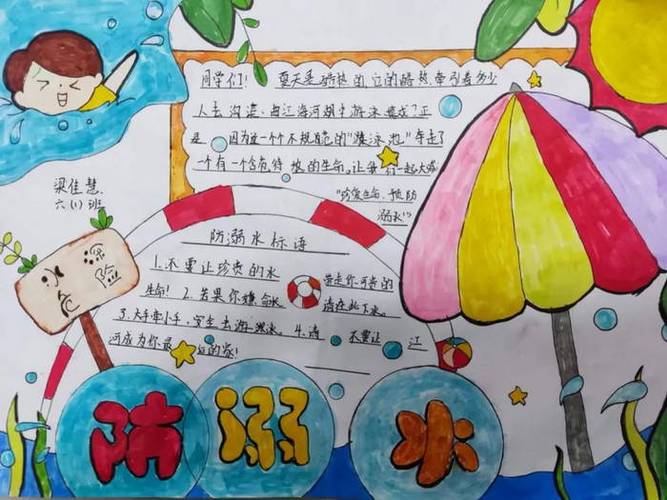 同学们! 夏天是酷热的,它的酷热牵引着多少
人去沟渠、由江海河湖中游泳
是 因为这一个个不规范的"游泳池"夺走了
一个有一个含有 的生命,让 一起大喊
"珍爱生命、预防
溺水"!
梁佳慧
六(1)班
小心危险
防溺水标语
1.不要让珍贵的水 带走你可贵的
生命! 2.若果你嫌命 请在此下水。
3.大手牵小手,安全去游 泳。4.请 不要让 江
河成为你最 的家!
防溺水